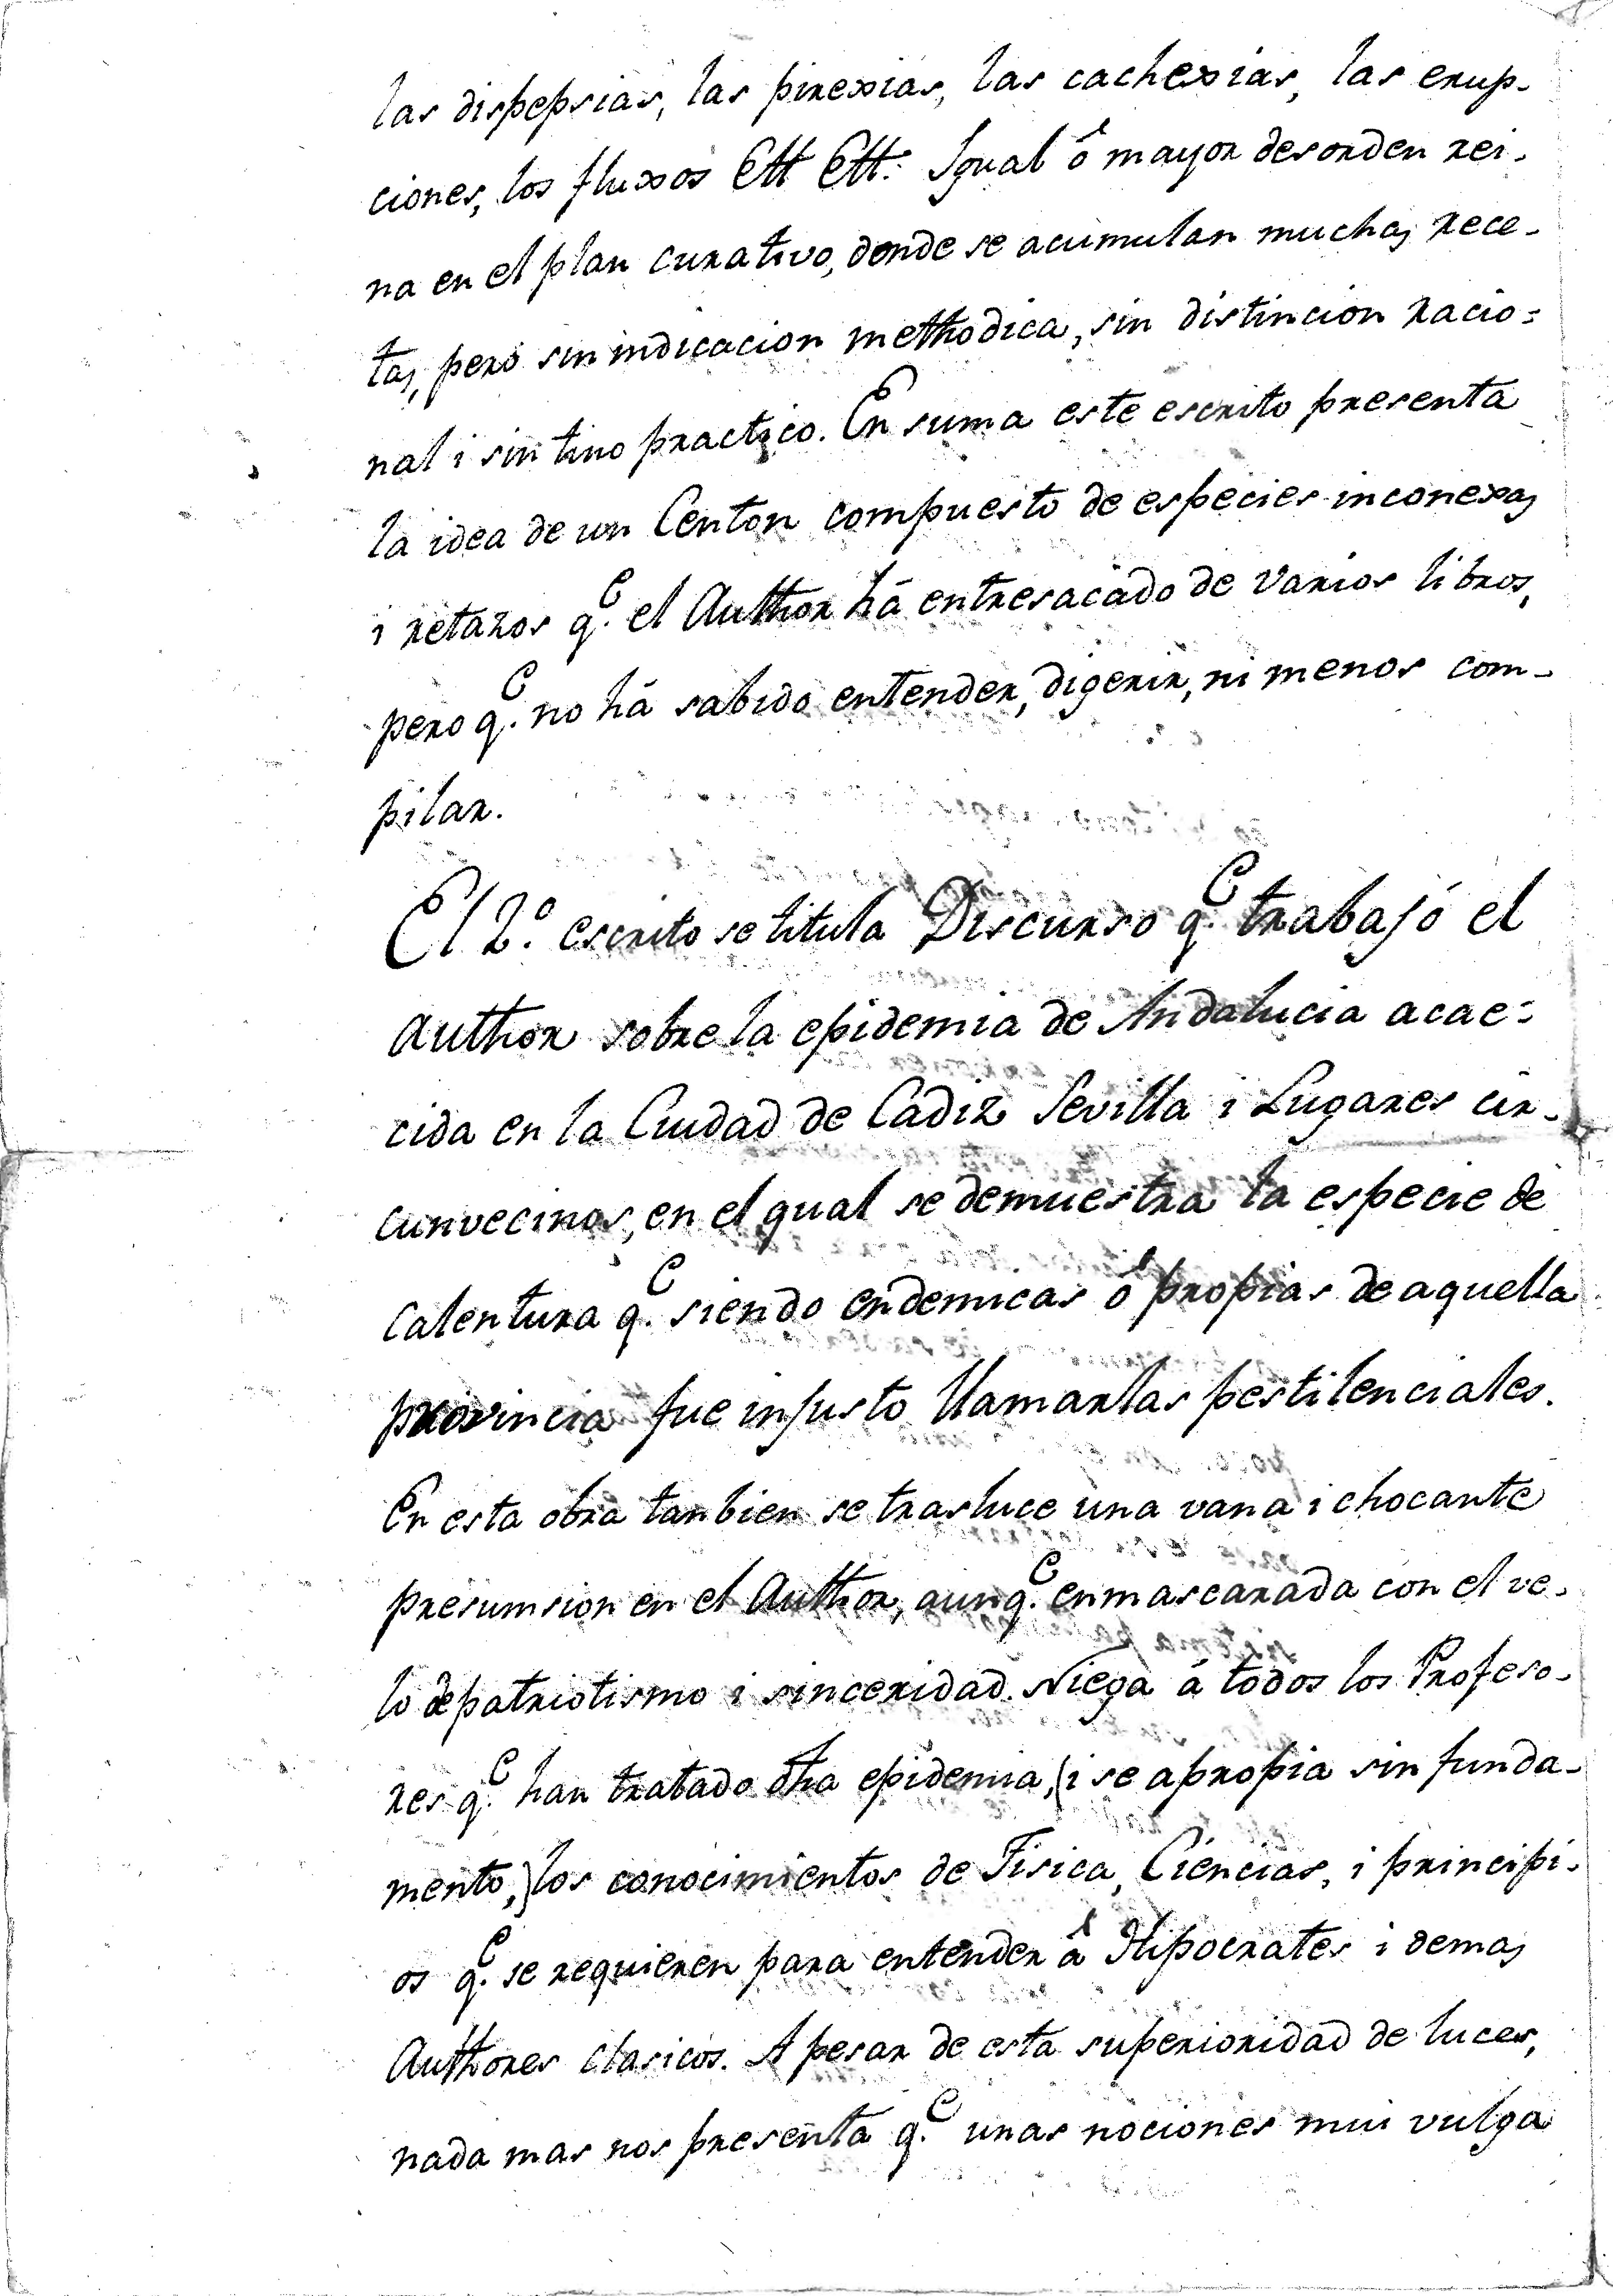 las dispepsias, las pirexias, las cachexias, las erup-
ciones, los fluxos Ett Ett.ª Igual ó mayor desorden rei-
na en el plan curativo, donde se acumulan muchas rece-
tas, pero sin indicacion methodica, sin distincion racio=
nal i sin tino practico. En suma este escrito presenta
la idea de un Centon compuesto de especies inconexas
i retazos q.e el Author há entresacado de varios libros,
pero q.e no há sabido entender, digerir, ni menos com-
pilar.
El 2.º escrito se titula Discurso q.e trabajó el
Author sobre la epidemia de Andalucia acae=
cida en la Ciudad de Cadiz Sevilla i Lugares cir-
cunvecinos, en el qual se demuestra la especie de
calentura q.e siendo endemicas ó propias de aquella
provincia fue injusto llamarlas pestilenciales.
En esta obra tanbien se trasluce una vana i chocante
presumsion en el Author, aunq.e enmascarada con el ve-
lo de patriotismo i sinceridad. Niega á todos los Profeso-
res q.e han tratado dha epidemia, (i se apropia sin funda-
mento,) los conocimientos de Fisica, Ciencias, i principi-
os q.e se requieren para entender á Hipocrates i demas
Authores clasicos. A pesar de esta superioridad de luces,
nada mas nos presenta q.e unas nociones mui vulga